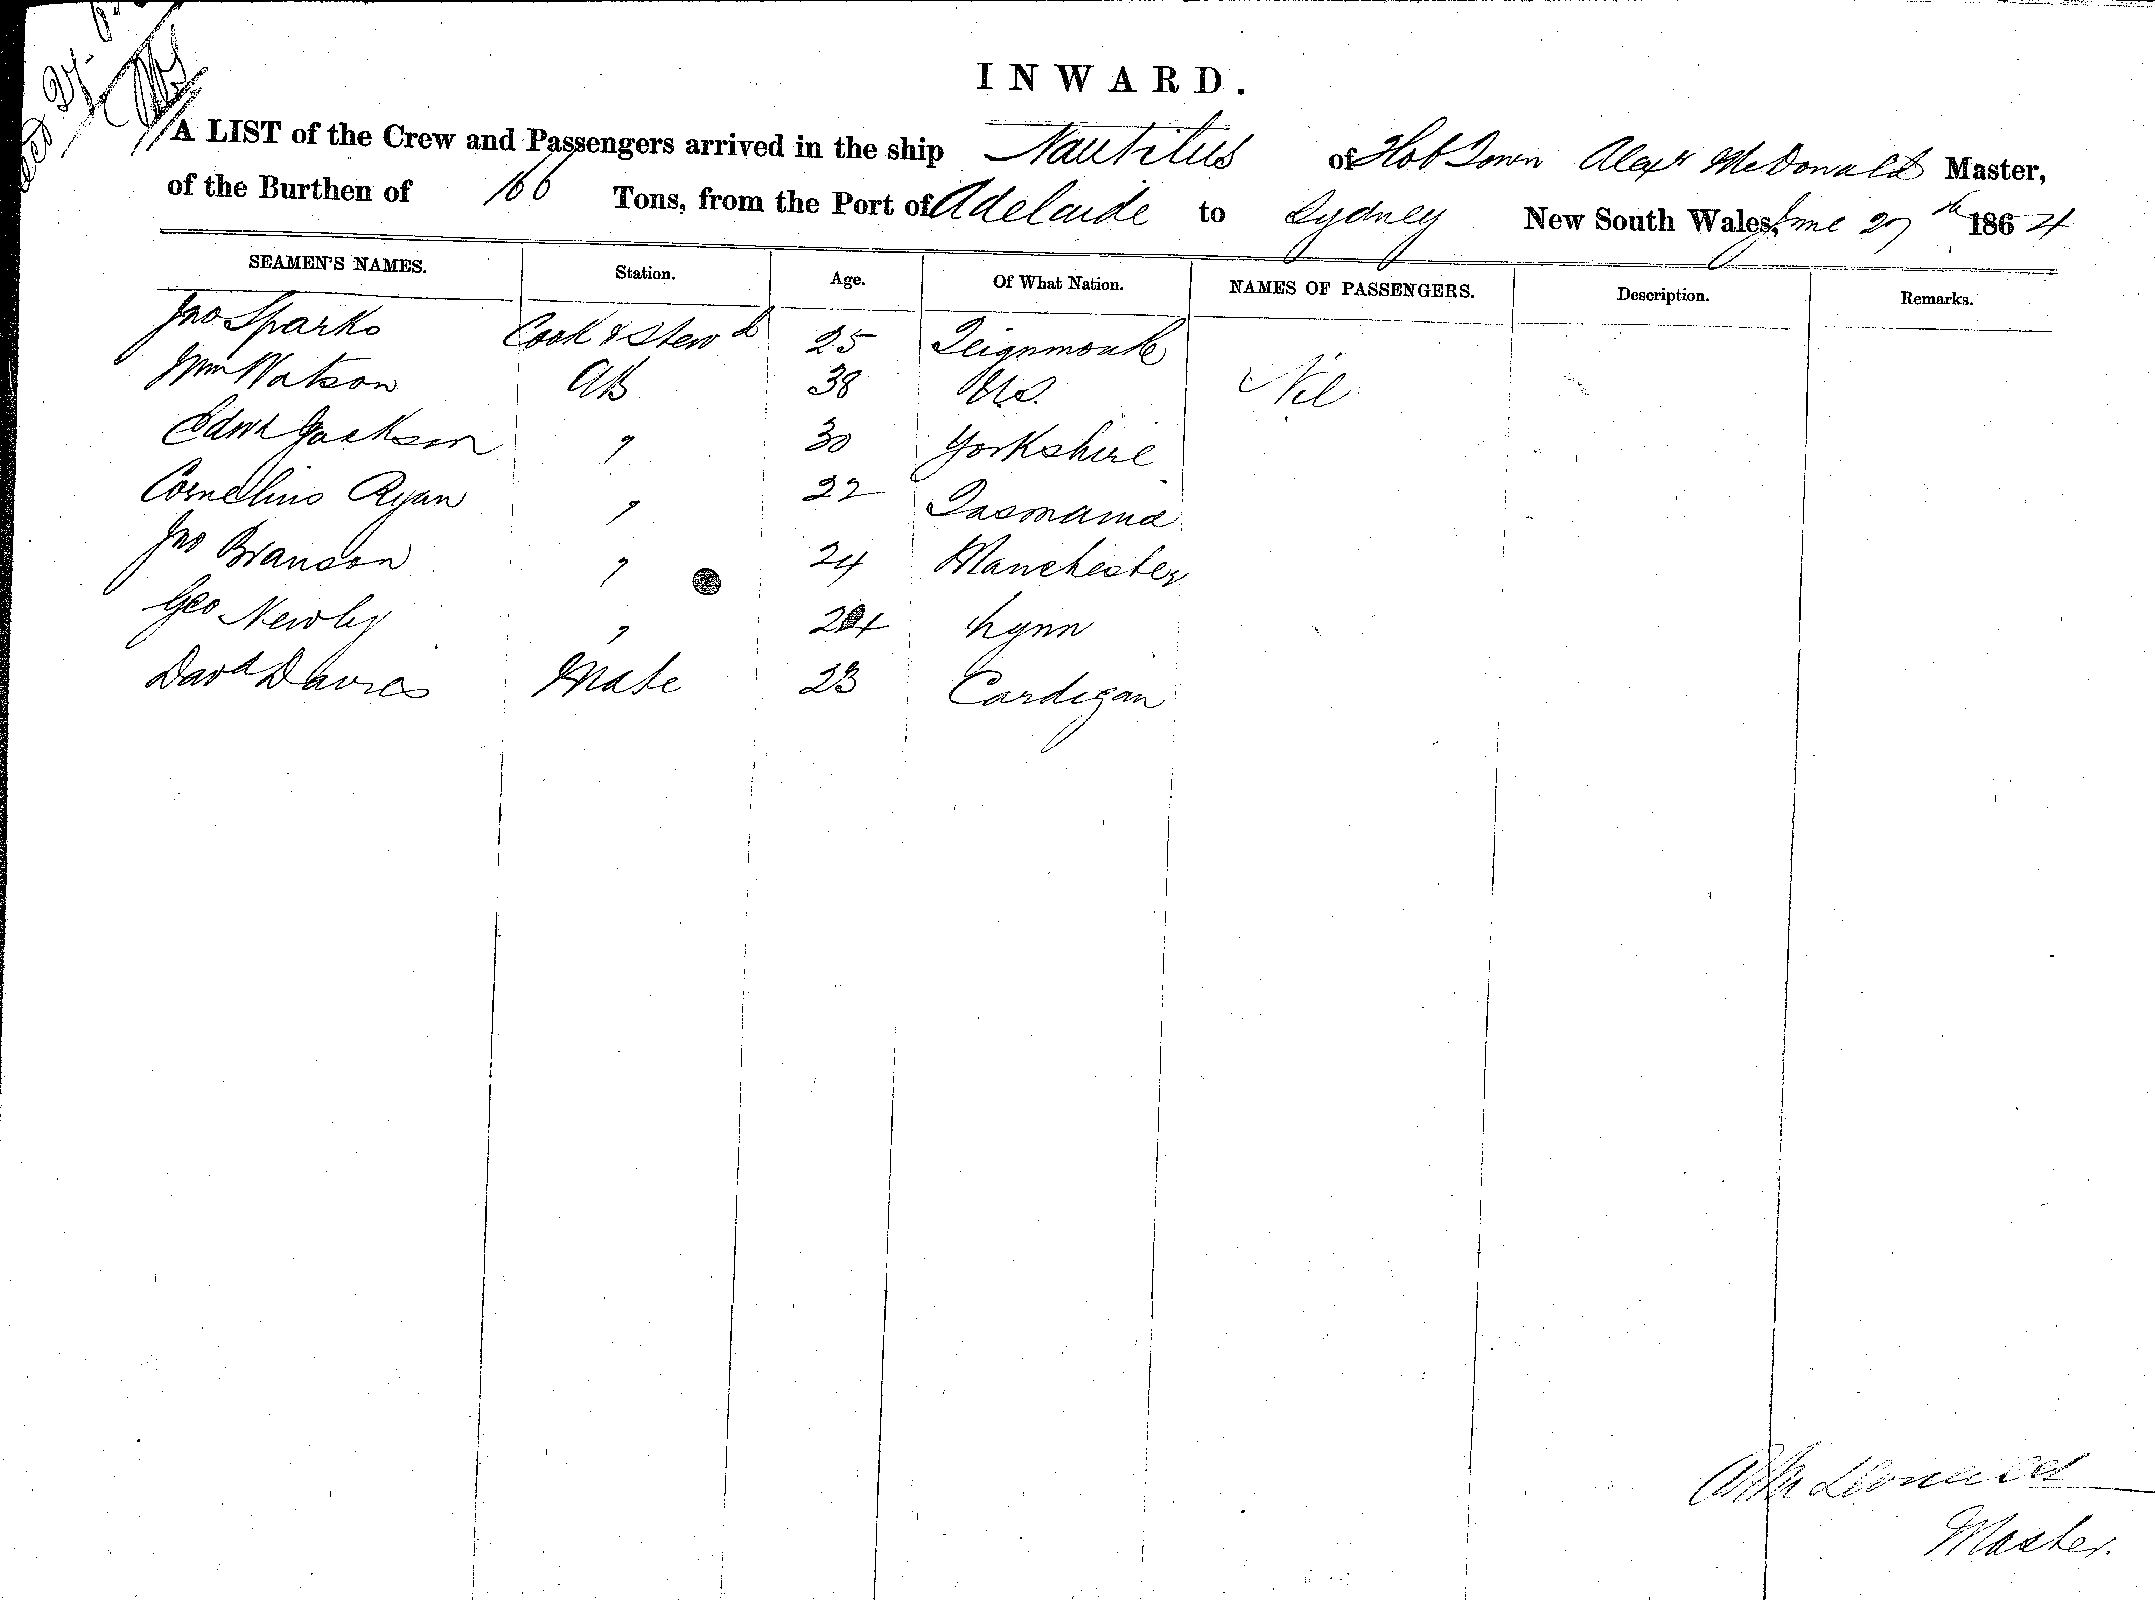 INWARD.
A LIST of the Crew and Passengers arrived in the ship Nautilus of Hob Town Alexr McDonald Master,
of the Burthen of 166 Tons, from the Port of Adelaide to Sydney New South Wales, June 27th 1864
SEAMEN'S NAMES. Station. Age. Of What Nation. NAMES OF PASSENGERS. Description. Remarks.
Jno Sparks Cook & Stewd 25 Teignmouth
Wm Watson AB 38 Nil
Edwd Jackson " 30 Yorkshire
Cornelius Ryan " 22 Tasmania
Jno Branson " 24 Manchester
Geo Newby " 24 Lynn
Davd Davies Mate 23 Cardigan
A McDonald
Master.